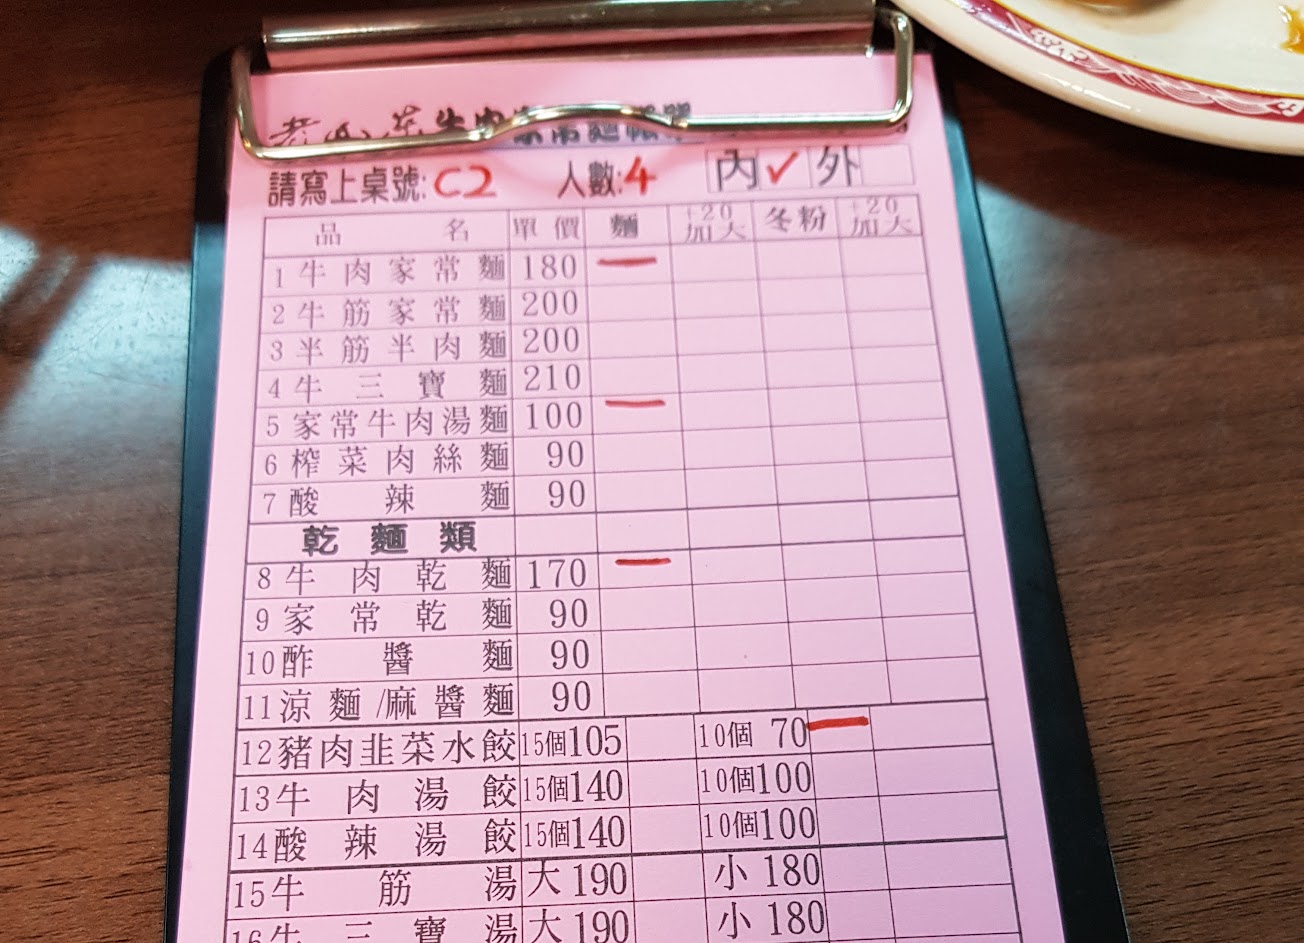 牛肉家常麵
請寫上桌號:C2 人數:4 內✓外
品名 單價 麵 +20加大 冬粉 +20加大
1牛肉家常麵 180 一
2牛筋家常麵 200
3半筋半肉麵 200
4牛三寶麵 210
5家常牛肉湯麵 100 一
6榨菜肉絲麵 90
7酸辣麵 90
乾麵類
8牛肉乾麵 170 一
9家常乾麵 90
10酢醬麵 90
11涼麵/麻醬麵 90
12豬肉韭菜水餃 15個105 10個 70 一
13牛肉湯餃 15個140 10個100
14酸辣湯餃 15個140 10個100
15牛筋湯 大190 小180
16牛三寶湯 大190 小180